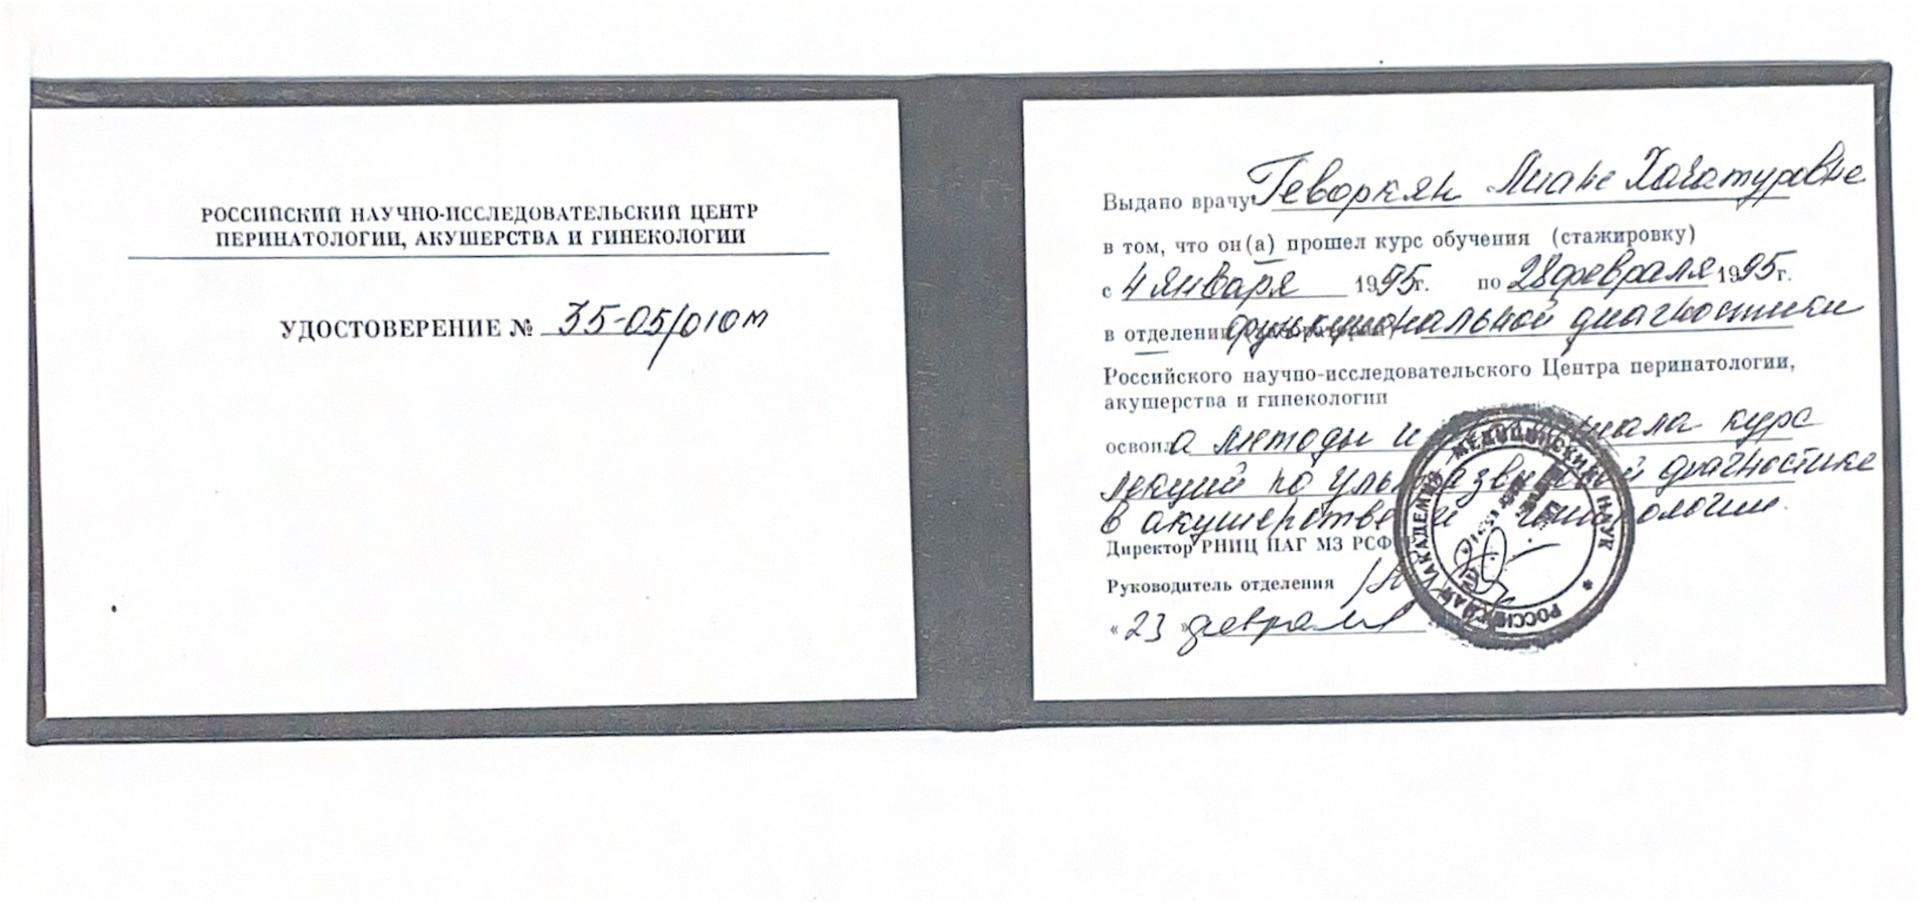 РОССИЙСКИЙ НАУЧНО-ИССЛЕДОВАТЕЛЬСКИЙ ЦЕНТР
ПЕРИНАТОЛОГИИ, АКУШЕРСТВА И ГИНЕКОЛОГИИ
УДОСТОВЕРЕНИЕ № 35-05/010м
Выдано врачу Геворкян Лиане Хачатуровне
в том, что он(а) прошел курс обучения (стажировку)
с 4 января 1995г. по 28 февраля 1995г.
в отделении функциональной диагностики
Российского научно-исследовательского Центра перинатологии,
акушерства и гинекологии
освоила методы и курс
лекций по ультразвуковой диагностике
в акушерстве и гинекологии.
Директор РНИЦ ПАГ МЗ РСФ
Руководитель отделения
«23» февраля
РОССИЙСКАЯ АКАДЕМИЯ МЕДИЦИНСКИХ НАУК *